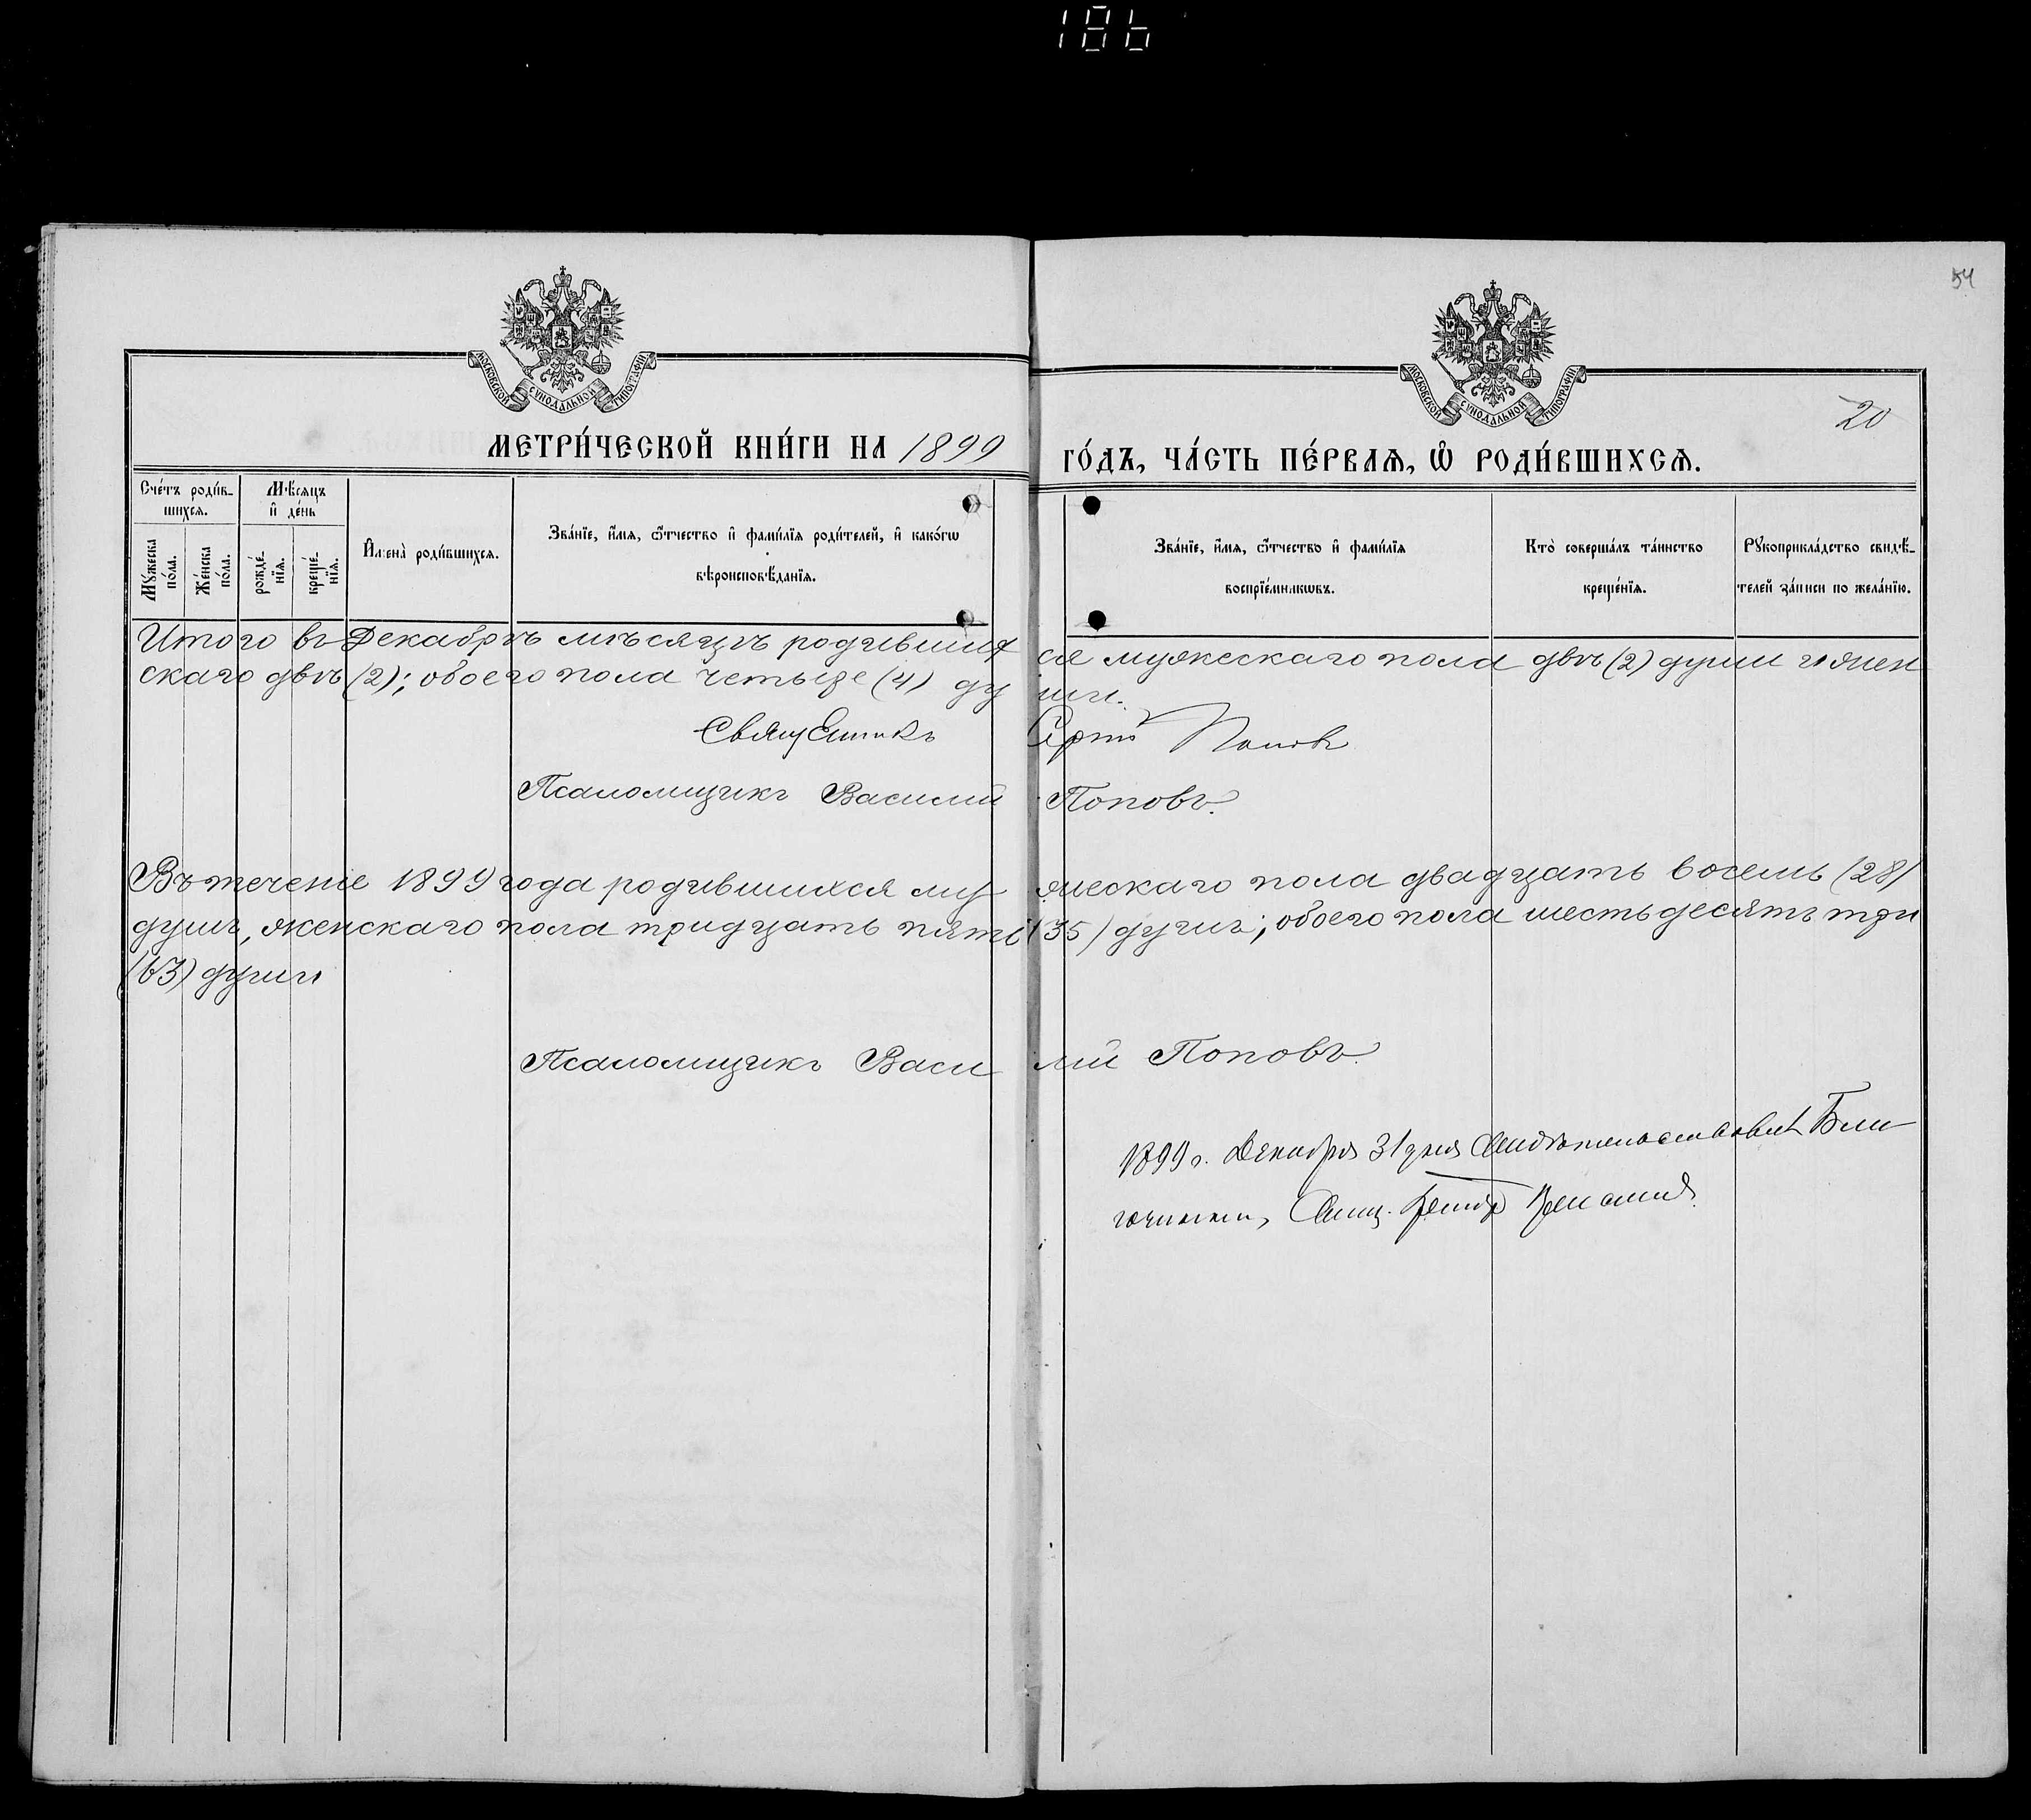 186
54
МОСКОВСКОЙ СѴНОДАЛЬНОЙ ТИПОГРАФІИ
МОСКОВСКОЙ СѴНОДАЛЬНОЙ ТИПОГРАФІИ
20
МЕТРИ́ЧЕСКОЙ КНИ́ГИ НА 1899 ГО́ДЪ, ЧА́СТЬ ПЕ́РВАѦ, Ѡ҆ РОДИ́ВШИХСѦ.
Сче́тъ роди́в-
шихсѧ.
Мꙋ́жеска
по́ла.
Же́нска
по́ла.
Мѣ́сѧцъ
и҆ де́нь
рожде́-
нїѧ.
креще́-
нїѧ.
И҆мена̀ роди́вшихсѧ.
Зва́нїе, и҆́мѧ, ѻ҆́тчество и҆ фами́лїѧ роди́телей, и҆ како́гѡ
вѣроисповѣ́данїѧ.
Зва́нїе, и҆́мѧ, ѻ҆́тчество и҆ фами́лїѧ
воспрїе́мникѡвъ.
Кто̀ соверша́лъ та́инство
креще́нїѧ.
Рꙋкоприкла́дство свидѣ́-
телей за́писи по жела́нїю.
Итого въ Декабрѣ мѣсяцѣ родившихся мужескаго пола двѣ (2) души и жен
скаго двѣ (2); обоего пола четыре (4) души.
Священникъ Сергій Поповъ
Псаломщикъ Василій Поповъ.
Въ теченіе 1899 года родившихся мужескаго пола двадцать восемь (28)
душъ, женскаго пола тридцать пять (35) душъ; обоего пола шестьдесятъ три
(63) души
Псаломщикъ Василій Поповъ.
1899 г. Декабря 31 дня Свидѣтельствовалъ Бла
гочинный, Свящ.